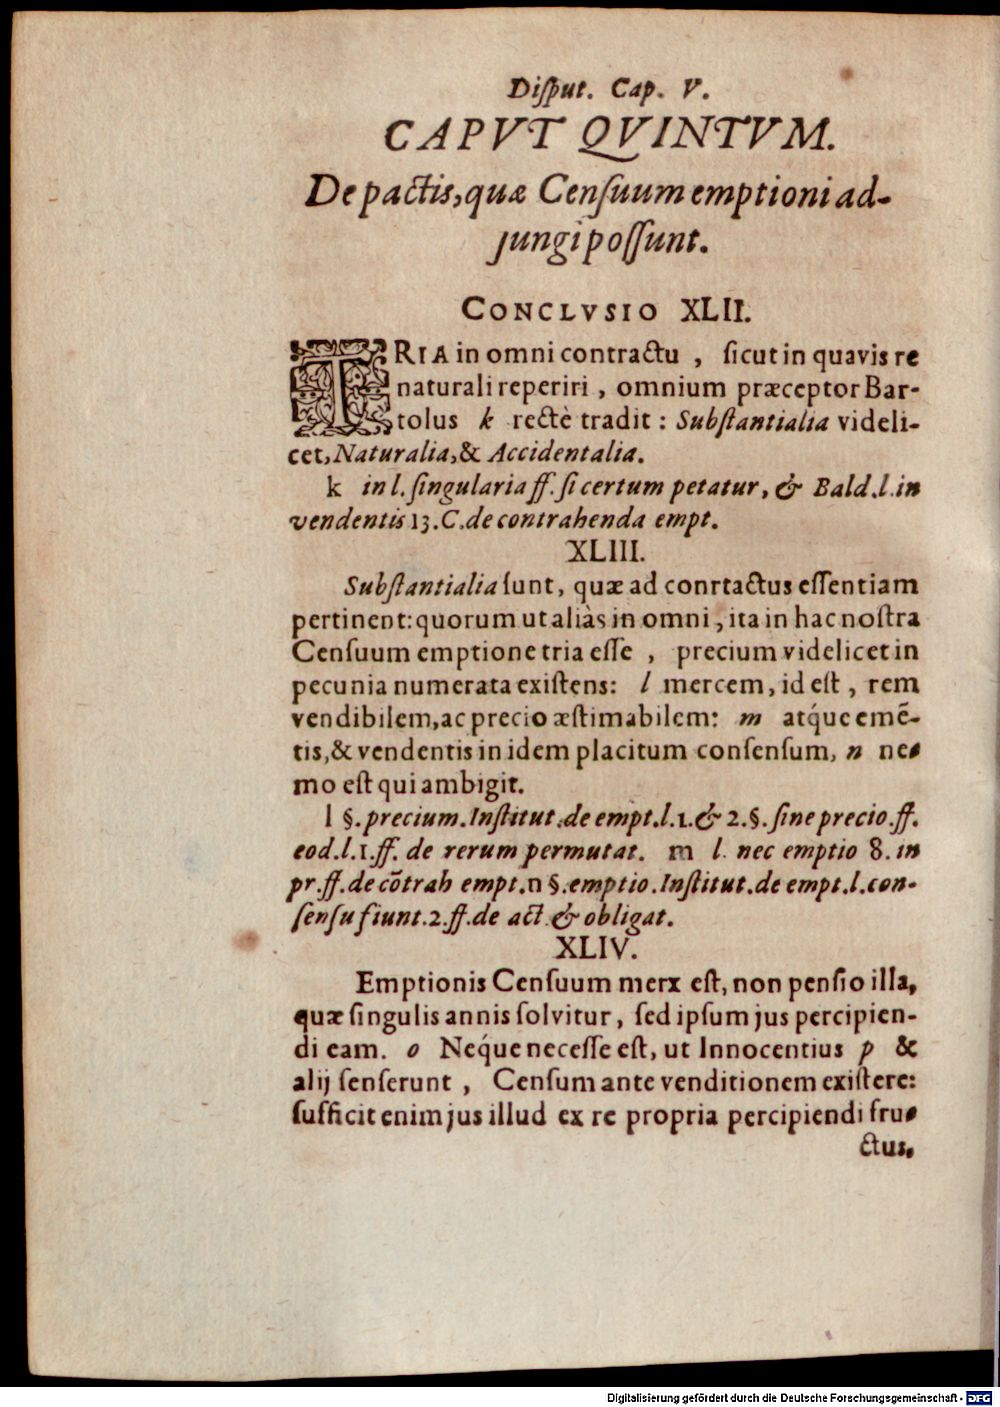 Diſput. Cap. V.
CAPVT QVINTVM.
De pactis, quæ Cenſuum emptioni ad-
jungi poſſunt.
CONCLVSIO XLII.
TRIA in omni contractu , ſicut in quavis re
naturali reperiri , omnium præceptor Bar-
tolus k rectè tradit : Subſtantialia videli-
cet, Naturalia, & Accidentalia.
k in l. ſingularia ff. ſi certum petatur, & Bald. l. in
vendentis 13. C. de contrahenda empt.
XLIII.
Subſtantialia ſunt, quæ ad conrtactus eſſentiam
pertinent: quorum ut aliàs in omni , ita in hac noſtra
Cenſuum emptione tria eſſe , precium videlicet in
pecunia numerata exiſtens: l mercem, id eſt , rem
vendibilem, ac precio æſtimabilem: m atq́ue emẽ-
tis, & vendentis in idem placitum conſenſum, n ne-
mo eſt qui ambigit.
l §. precium. Inſtitut. de empt. l. 1. & 2. §. ſine precio. ff.
eod. l. 1. ff. de rerum permutat. m l. nec emptio 8. in
pr. ff. de cõtrah empt. n §. emptio. Inſtitut. de empt. l. con-
ſenſu fiunt. 2. ff. de act. & obligat.
XLIV.
Emptionis Cenſuum merx eſt, non penſio illa,
quæ ſingulis annis ſolvitur, ſed ipſum jus percipien-
di eam. o Neq́ue neceſſe eſt, ut Innocentius p &
alij ſenſerunt , Cenſum ante venditionem exiſtere:
ſufficit enim jus illud ex re propria percipiendi fru-
ctus,
Digitalisierung gefördert durch die Deutsche Forschungsgemeinschaft - DFG